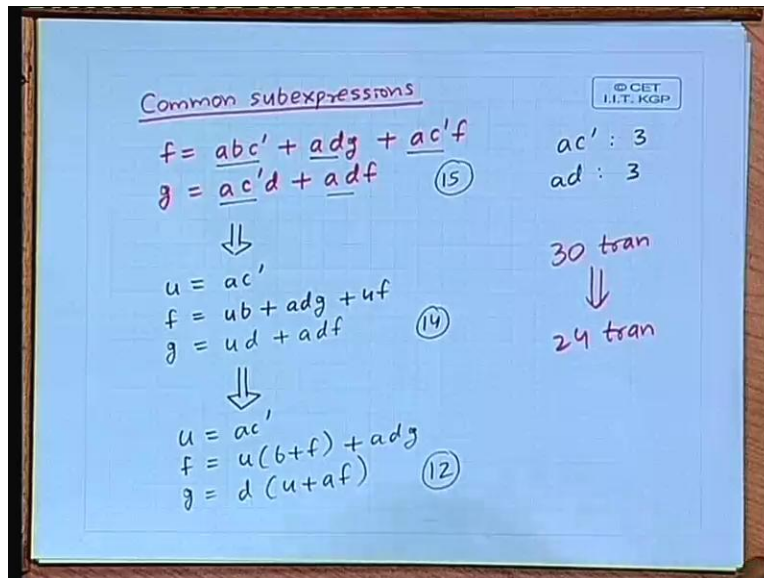 Common subexpressions
© CET
I.I.T. KGP
f = abc' + adg + ac'f
g = ac'd + adf
15
ac' : 3
ad : 3
⇓
u = ac'
f = ub + adg + uf
g = ud + adf
14
30 tran
⇓
24 tran
⇓
u = ac'
f = u(b+f) + adg
g = d (u+af)
12